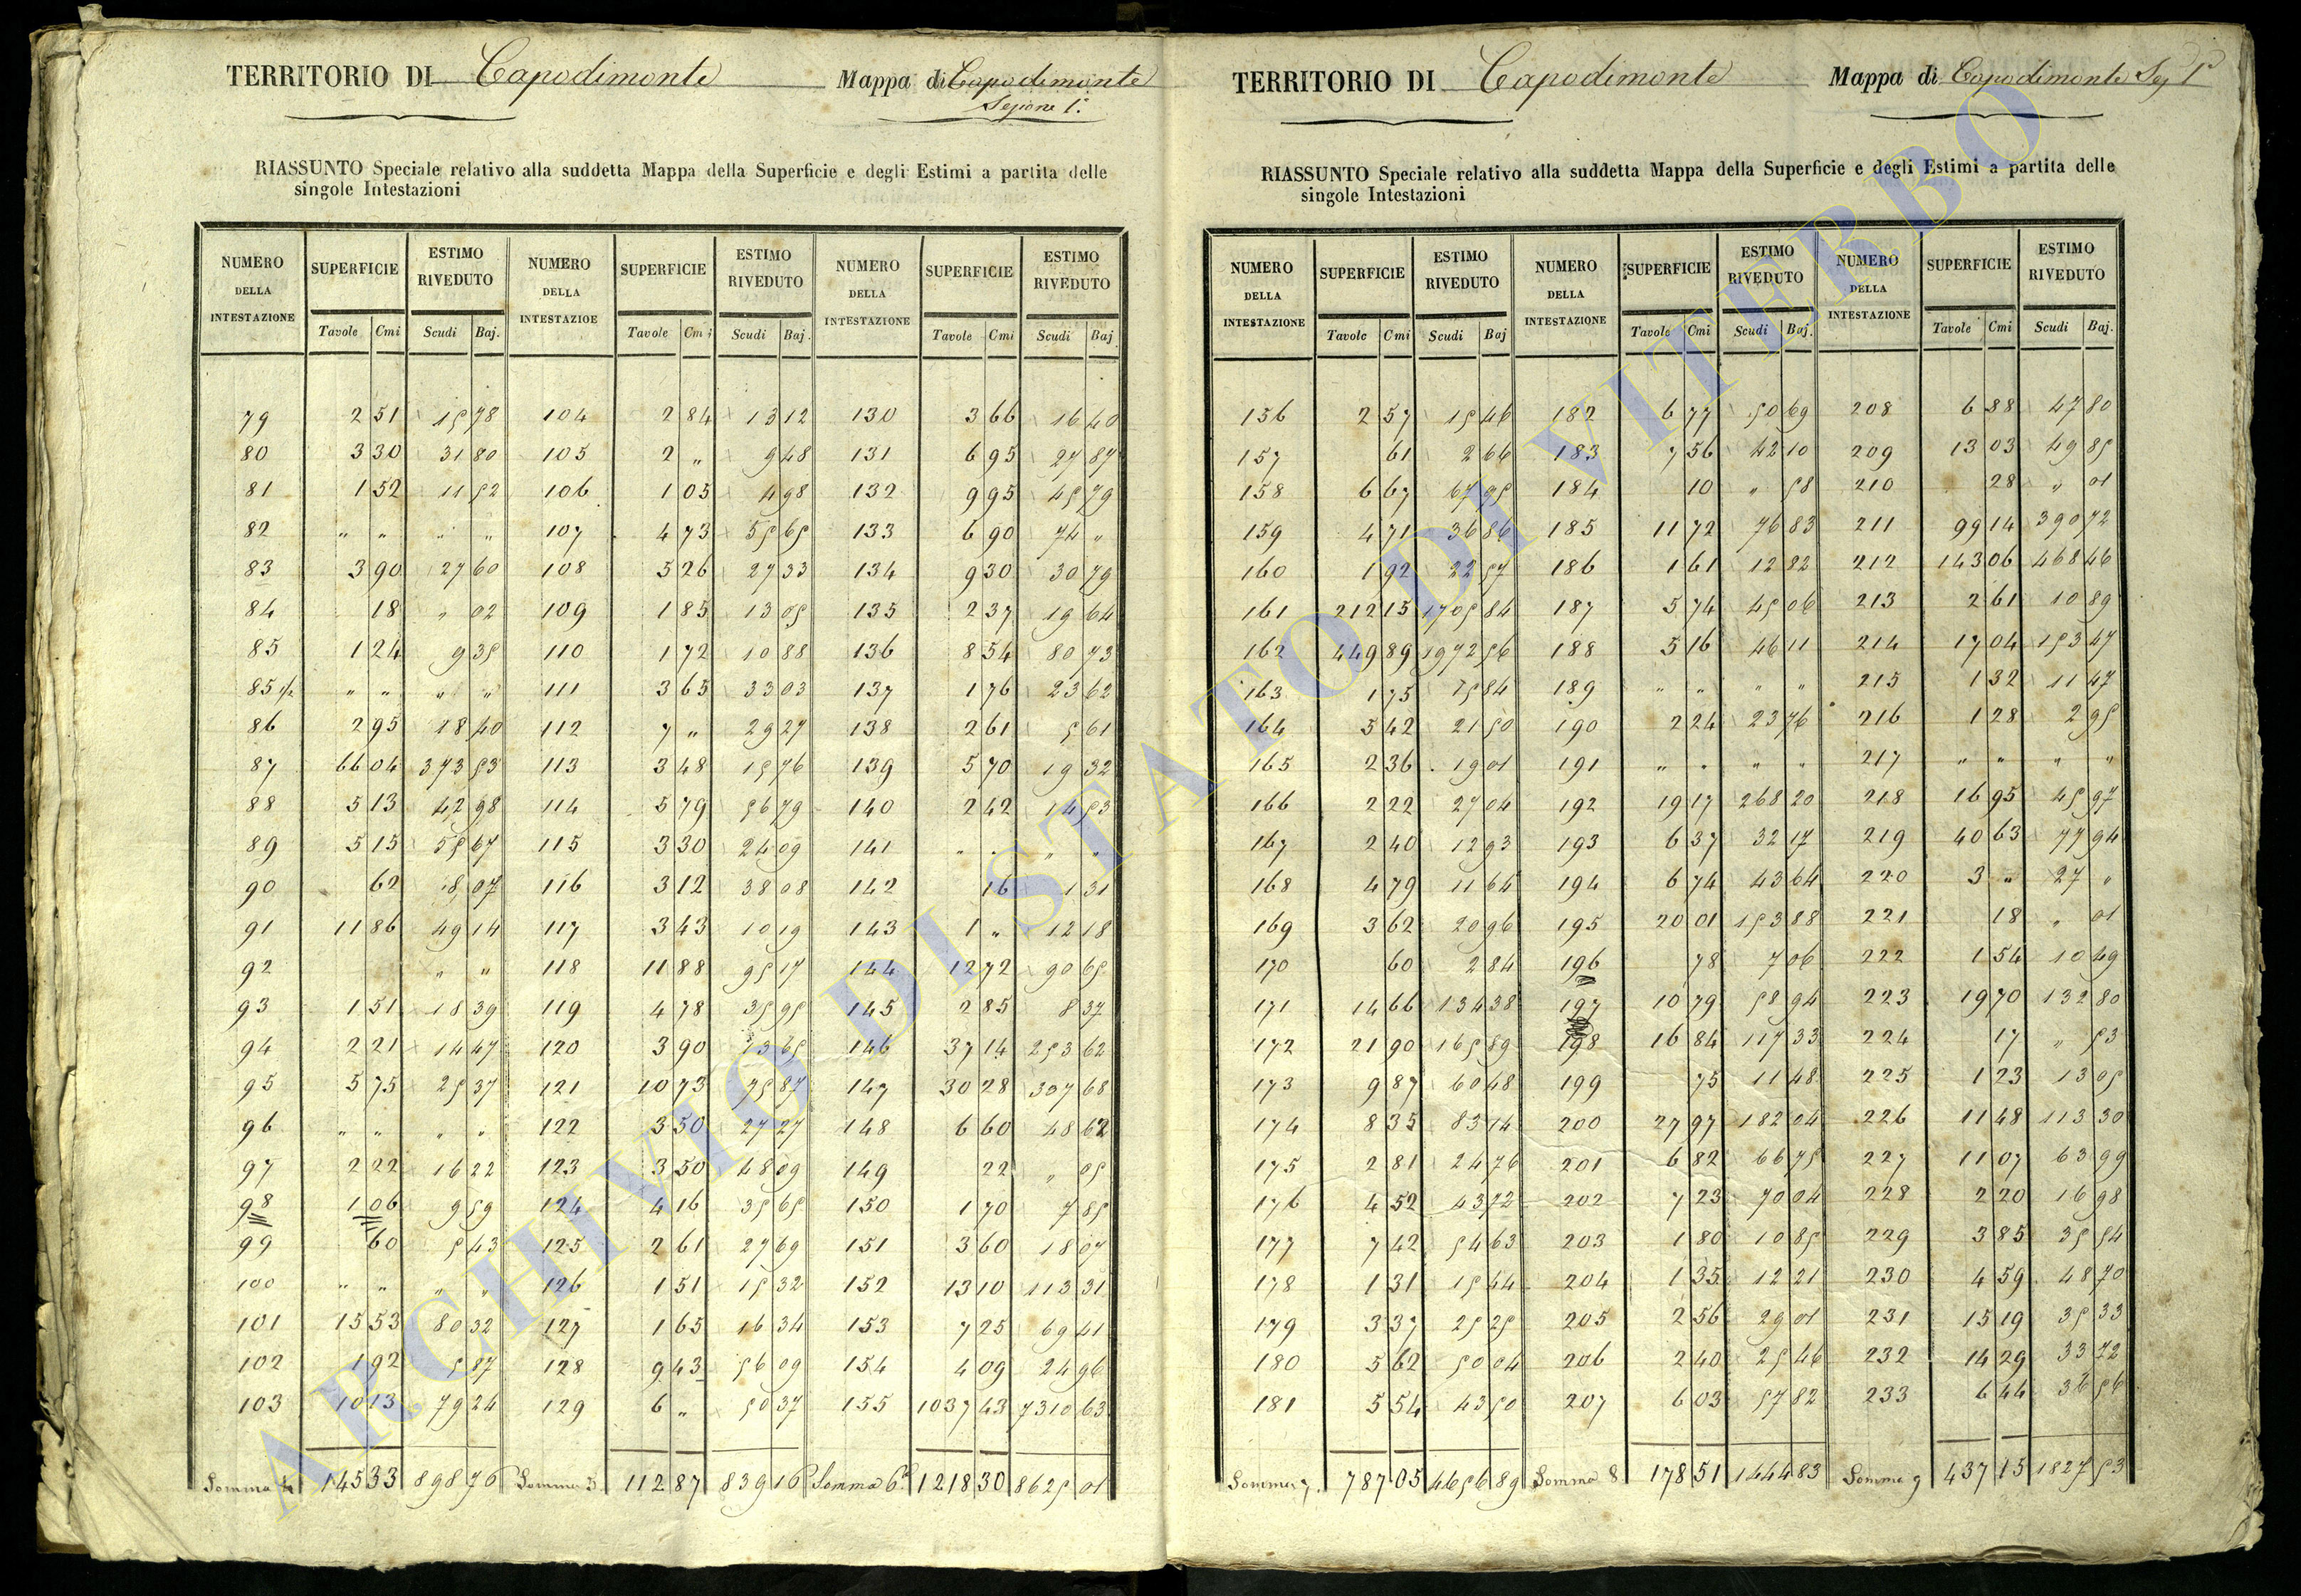 TERRITORIO DI Capodimonte Mappa di Capodimonte
Sezione 1ª
RIASSUNTO Speciale relativo alla suddetta Mappa della Superficie e degli Estimi a partita delle
singole Intestazioni
NUMERO DELLA INTESTAZIONE SUPERFICIE ESTIMO RIVEDUTO NUMERO DELLA INTESTAZIOE SUPERFICIE ESTIMO RIVEDUTO NUMERO DELLA INTESTAZIONE SUPERFICIE ESTIMO RIVEDUTO
Tavole Cmi Scudi Baj. Tavole Cmi Scudi Baj. Tavole Cmi Scudi Baj
79 2 51 15 78 104 2 84 13 12 130 3 66 16 40
80 3 30 31 80 105 2 „ 9 48 131 6 95 27 87
81 1 52 11 52 106 1 05 4 98 132 9 95 45 79
82 „ „ „ „ 107 4 73 55 65 133 6 90 74 „
83 3 90 27 60 108 5 26 27 33 134 9 30 30 79
84 18 „ 02 109 1 85 13 05 135 2 37 19 64
85 1 24 9 35 110 1 72 10 88 136 8 54 80 73
85 1/2 „ „ „ „ 111 3 65 33 03 137 1 76 23 62
86 2 95 18 40 112 7 „ 29 27 138 2 61 5 61
87 66 04 373 53 113 3 48 15 76 139 5 70 19 32
88 5 13 42 98 114 5 79 56 79 140 2 42 14 53
89 5 15 55 67 115 3 30 24 09 141 „ „ „ „
90 62 8 07 116 3 12 38 08 142 16 1 31
91 11 86 49 14 117 3 43 10 19 143 1 „ 12 18
92 „ „ 118 11 88 95 17 144 12 72 90 65
93 1 51 18 39 119 4 78 35 95 145 2 85 8 37
94 2 21 14 47 120 3 90 13 65 146 37 14 253 62
95 5 75 25 37 121 10 73 75 87 147 30 28 307 68
96 „ „ „ „ 122 3 50 27 27 148 6 60 48 62
97 2 22 16 22 123 3 50 48 09 149 22 „ 05
98 1 06 9 59 124 4 16 35 65 150 1 70 7 85
99 60 5 43 125 2 61 27 69 151 3 60 18 07
100 „ „ „ „ 126 1 51 15 32 152 13 10 113 31
101 15 53 80 32 127 1 65 16 34 153 7 25 69 41
102 1 92 5 87 128 9 43 56 09 154 4 09 24 96
103 10 13 79 24 129 6 „ 50 37 155 1037 43 7310 63
Somma 4 145 33 898 76 Somma 5 112 87 839 16 Somma 6ª 1218 30 8625 01
TERRITORIO DI Capodimonte Mappa di Capodimonte Sez 1ª
RIASSUNTO Speciale relativo alla suddetta Mappa della Superficie e degli Estimi a partita delle
singole Intestazioni
NUMERO DELLA INTESTAZIONE SUPERFICIE ESTIMO RIVEDUTO NUMERO DELLA INTESTAZIONE SUPERFICIE ESTIMO RIVEDUTO NUMERO DELLA INTESTAZIONE SUPERFICIE ESTIMO RIVEDUTO
Tavole Cmi Scudi Baj Tavole Cmi Scudi Baj. Tavole Cmi Scudi Baj.
156 2 57 15 46 182 6 77 50 69 208 6 88 47 80
157 61 2 66 183 7 56 42 10 209 13 03 49 85
158 6 67 67 95 184 10 „ 58 210 28 „ 01
159 4 71 36 86 185 11 72 76 83 211 99 14 390 72
160 1 92 22 57 186 1 61 12 82 212 143 06 468 46
161 212 15 1705 84 187 5 74 45 06 213 2 61 10 89
162 449 89 1972 56 188 5 16 46 11 214 17 04 153 47
163 1 75 15 84 189 „ „ „ „ 215 1 32 11 47
164 5 42 21 50 190 2 24 23 76 216 1 28 2 95
165 2 36 19 01 191 „ „ „ „ 217 „ „ „ „
166 2 22 27 04 192 19 17 268 20 218 16 95 45 97
167 2 40 12 93 193 6 37 32 17 219 40 63 77 94
168 4 79 11 64 194 6 74 43 64 220 3 „ 27 „
169 3 62 20 96 195 20 01 153 88 221 18 „ 01
170 60 2 84 196 78 7 06 222 1 54 10 49
171 14 66 134 38 197 10 79 58 94 223 19 70 132 80
172 21 90 165 89 198 16 84 117 33 224 17 „ 53
173 9 87 60 48 199 75 11 48 225 1 23 13 05
174 8 35 83 14 200 27 97 182 04 226 11 48 113 30
175 2 81 24 76 201 6 82 66 75 227 11 07 63 99
176 4 52 43 72 202 7 23 70 04 228 2 20 16 98
177 7 42 54 63 203 1 80 10 85 229 3 85 35 54
178 1 31 15 44 204 1 35 12 21 230 4 59 48 70
179 3 37 25 25 205 2 56 29 01 231 15 19 35 33
180 5 62 50 04 206 2 40 25 46 232 14 29 33 72
181 5 54 43 50 207 6 03 57 82 233 6 44 36 56
Somma 7. 787 05 4656 89 Somma 8 178 51 1444 83 Somma 9 437 15 1827 53
ARCHIVIO DI STATO DI VITERBO